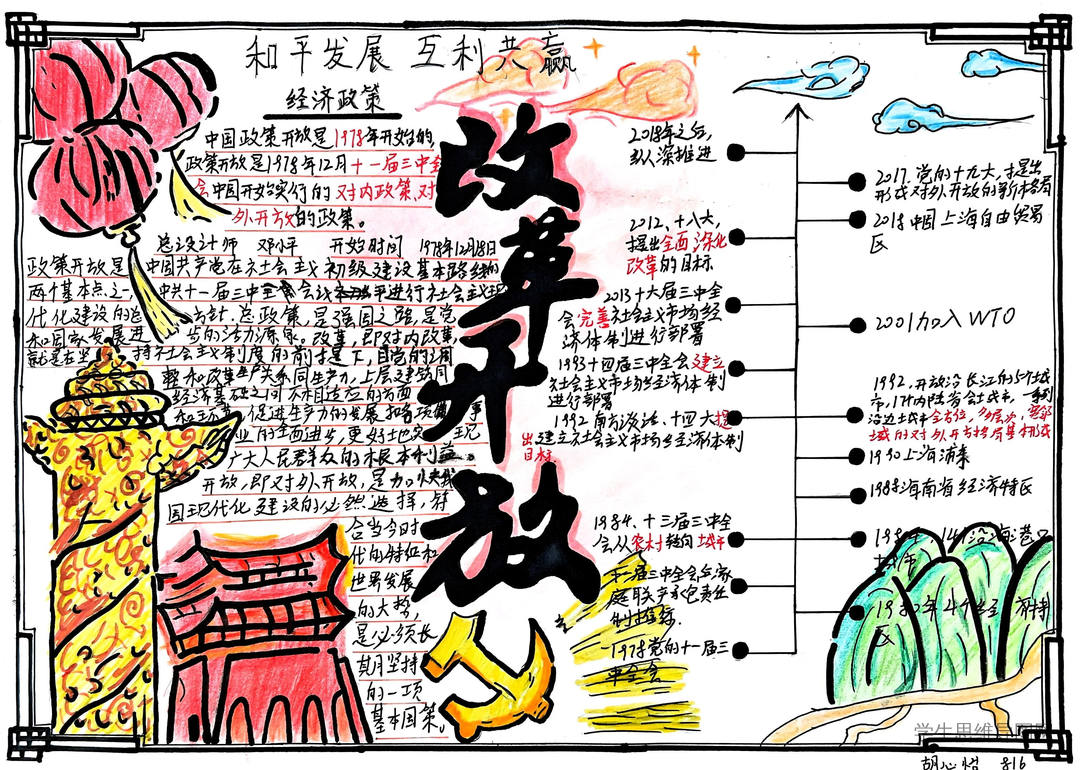 和平发展 互利共赢
经济政策
中国政策开放是1978年开始的
政策开放是1978年12月十一届三中全
会中国开始实行的对内政策、对
外开放的政策。
总设计师 邓小平 开始时间 1978年12月18日
政策开放是中国共产党在社会主义初级建设基本路线的
两个基本点之一,中共十一届三中全会
进行社会主义现
代化建设的总方针、总政策,是强国之强,是党
和国家发展进步的活力源泉。改革,即对内改革,
就是在坚持社会主义制度的前提下,自觉的调
整和改革生产关系同生产力,上层建筑同
经济基础之间不相适应的方面
和环节,促进生产力的发展和各项事
业的全面进步,更好地实现
广大人民群众的根本利益。
开放,即对外开放,是加快我
国现代化建设的必然选择,符
合当今时
代的特征和
世界发展
的大势,
是必须长
期坚持
的一项
基本国策。
改革开放
2018年之后,
纵深推进
2012,十八大,
提出全面深化
改革的目标
2013十六届三中全
会完善社会主义市场经
济体制进行部署
1993十四届三中全会建立
社会主义市场经济体制
进行部署
1992南方谈话、十四大提
出建立社会主义市场经济体制
目标
1984、十三届三中全
会从农村转向城市
十二届三中全会与家
庭联产承包责任
制推导
1978党的十一届三
中全会
2017.党的十九大,才提出
形成对外开放的新格局
2018中国上海自由贸易
区
2001加入WTO
1992.开放沿长江的5个城
市,17个内陆省会城市,一系列
沿边城市全方位,多层次,宽领
域的对外开放格局基本形成
1990上海浦东
1988海南省经济特区
14个沿海港口
城市
1980年4个经
区
胡心怡 816